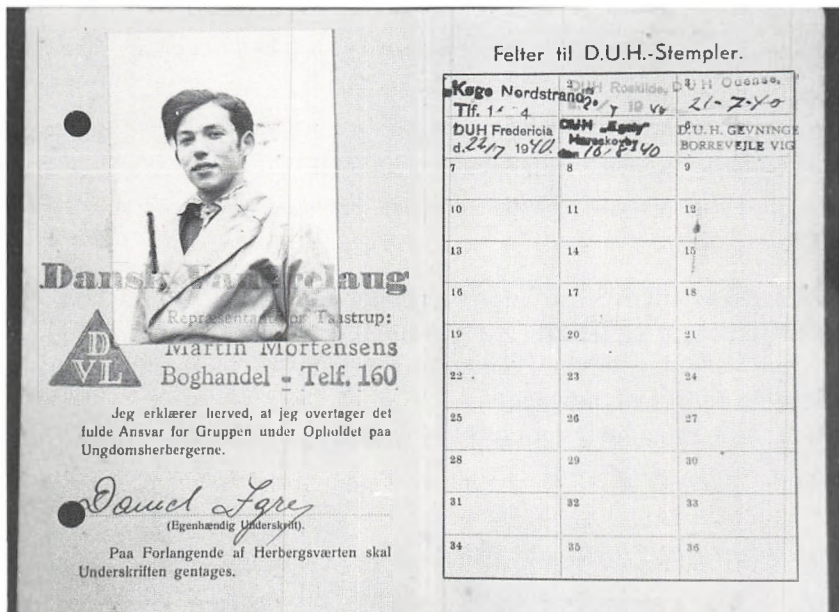 Dansk Vandrelaug
Repræsentant for Taastrup:
DVL
Martin Mortensens
Boghandel - Telf. 160
Jeg erklærer herved, at jeg overtager det
fulde Ansvar for Gruppen under Opholdet paa
Ungdomsherbergerne.
Daniel
(Egenhændig Underskrift).
Paa Forlangende af Herbergsværten skal
Underskriften gentages.
Felter til D.U.H.-Stempler.
Køge Nordstrand
Tlf. 1
DUH Roskilde,
19
DUH Odense,
21-7-40
DUH Fredericia
d. 22/7 1940.
DUH "Egely"
Hareskovby
den 16/8 1940
D.U.H. GEVNINGE
BORREVEJLE VIG
7 8 9
10 11 12
13 14 15
16 17 18
19 20 21
22 23 24
25 26 27
28 29 30
31 32 33
34 35 36